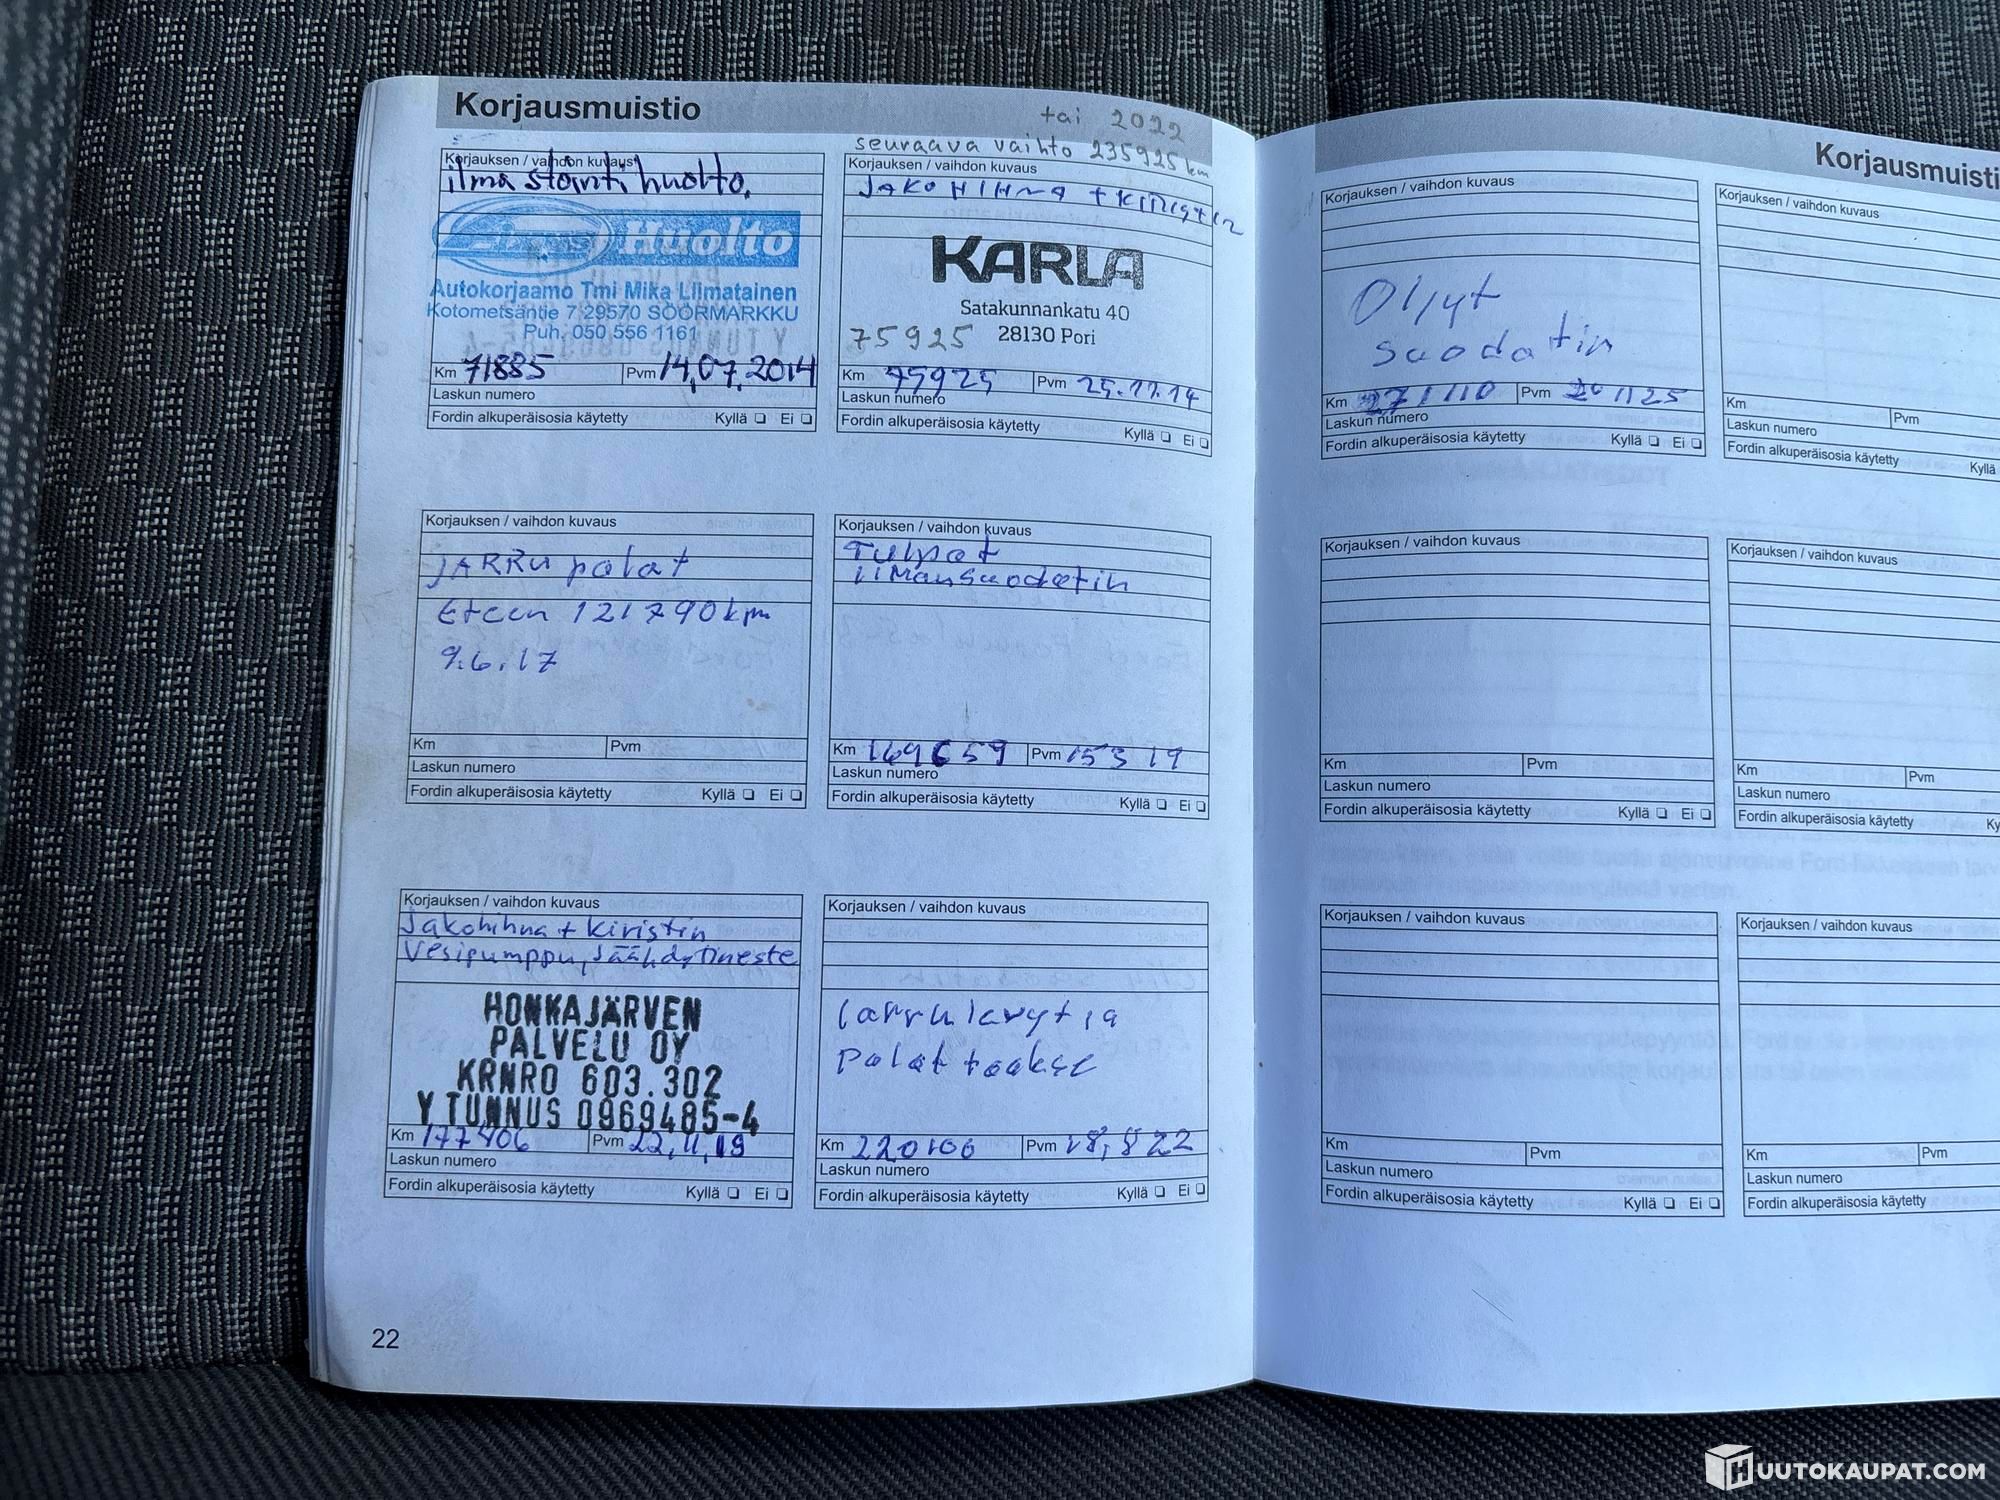 Korjausmuistio
tai 2022
seuraava vaihto 235925 km
Korjauksen / vaihdon kuvaus
ilmastointi huolto.
Huolto
Autokorjaamo Tmi Mika Liimatainen
Kotometsäntie 7 29570 SÖÖRMARKKU
Puh. 050 556 1161
Km 71885 Pvm 14.07.2014
Laskun numero
Fordin alkuperäisosia käytetty Kyllä Ei
Korjauksen / vaihdon kuvaus
JAKOHIHNA + KIRISTIN
KARLA
Satakunnankatu 40
28130 Pori
75925
Km 75925 Pvm 25.11.14
Laskun numero
Fordin alkuperäisosia käytetty Kyllä Ei
Korjauksen / vaihdon kuvaus
JARRU palat
Eteen 121790 km
9.6.17
Km Pvm
Laskun numero
Fordin alkuperäisosia käytetty Kyllä Ei
Korjauksen / vaihdon kuvaus
Tulpat
ilmansuodatin
Km 169659 Pvm 15 3 19
Laskun numero
Fordin alkuperäisosia käytetty Kyllä Ei
Korjauksen / vaihdon kuvaus
Jakohihna + kiristin
Vesipumppu, Jäähdytineste
HONKAJÄRVEN
PALVELU OY
KRNRO 603.302
Y TUNNUS 0969485-4
Km 177406 Pvm 22.11.19
Laskun numero
Fordin alkuperäisosia käytetty Kyllä Ei
Korjauksen / vaihdon kuvaus
Jarrulevyt ja
palat taakse
Km 220106 Pvm 18.8 22
Laskun numero
Fordin alkuperäisosia käytetty Kyllä Ei
22
Korjausmuisti
Korjauksen / vaihdon kuvaus
Öljyt
suodatin
Km 271110 Pvm
Laskun numero
Fordin alkuperäisosia käytetty Kyllä Ei
Korjauksen / vaihdon kuvaus
Km Pvm
Laskun numero
Fordin alkuperäisosia käytetty Kyllä
Korjauksen / vaihdon kuvaus
Km Pvm
Laskun numero
Fordin alkuperäisosia käytetty Kyllä Ei
Korjauksen / vaihdon kuvaus
Km Pvm
Laskun numero
Fordin alkuperäisosia käytetty Ky
Korjauksen / vaihdon kuvaus
Km Pvm
Laskun numero
Fordin alkuperäisosia käytetty Kyllä Ei
Korjauksen / vaihdon kuvaus
Km Pvm
Laskun numero
Fordin alkuperäisosia käytetty
HUUTOKAUPAT.COM